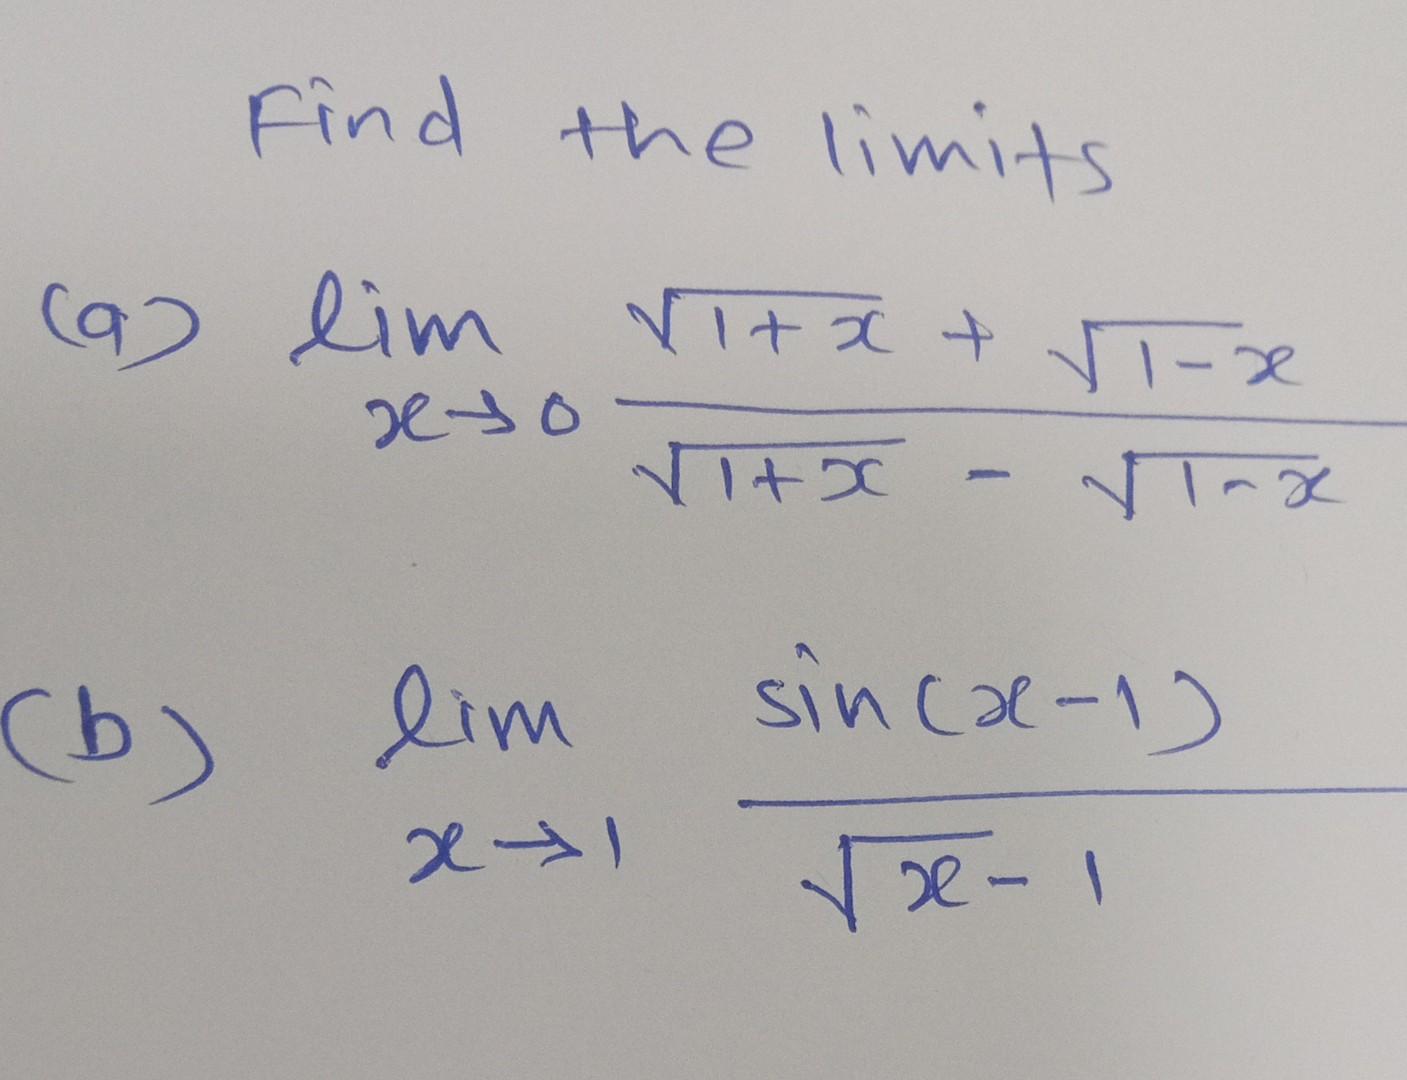 Find the limits
(a) lim x→0 (√(1+x) + √(1-x)) / (√(1+x) - √(1-x))
(b) lim x→1 sin(x-1) / (√x - 1)